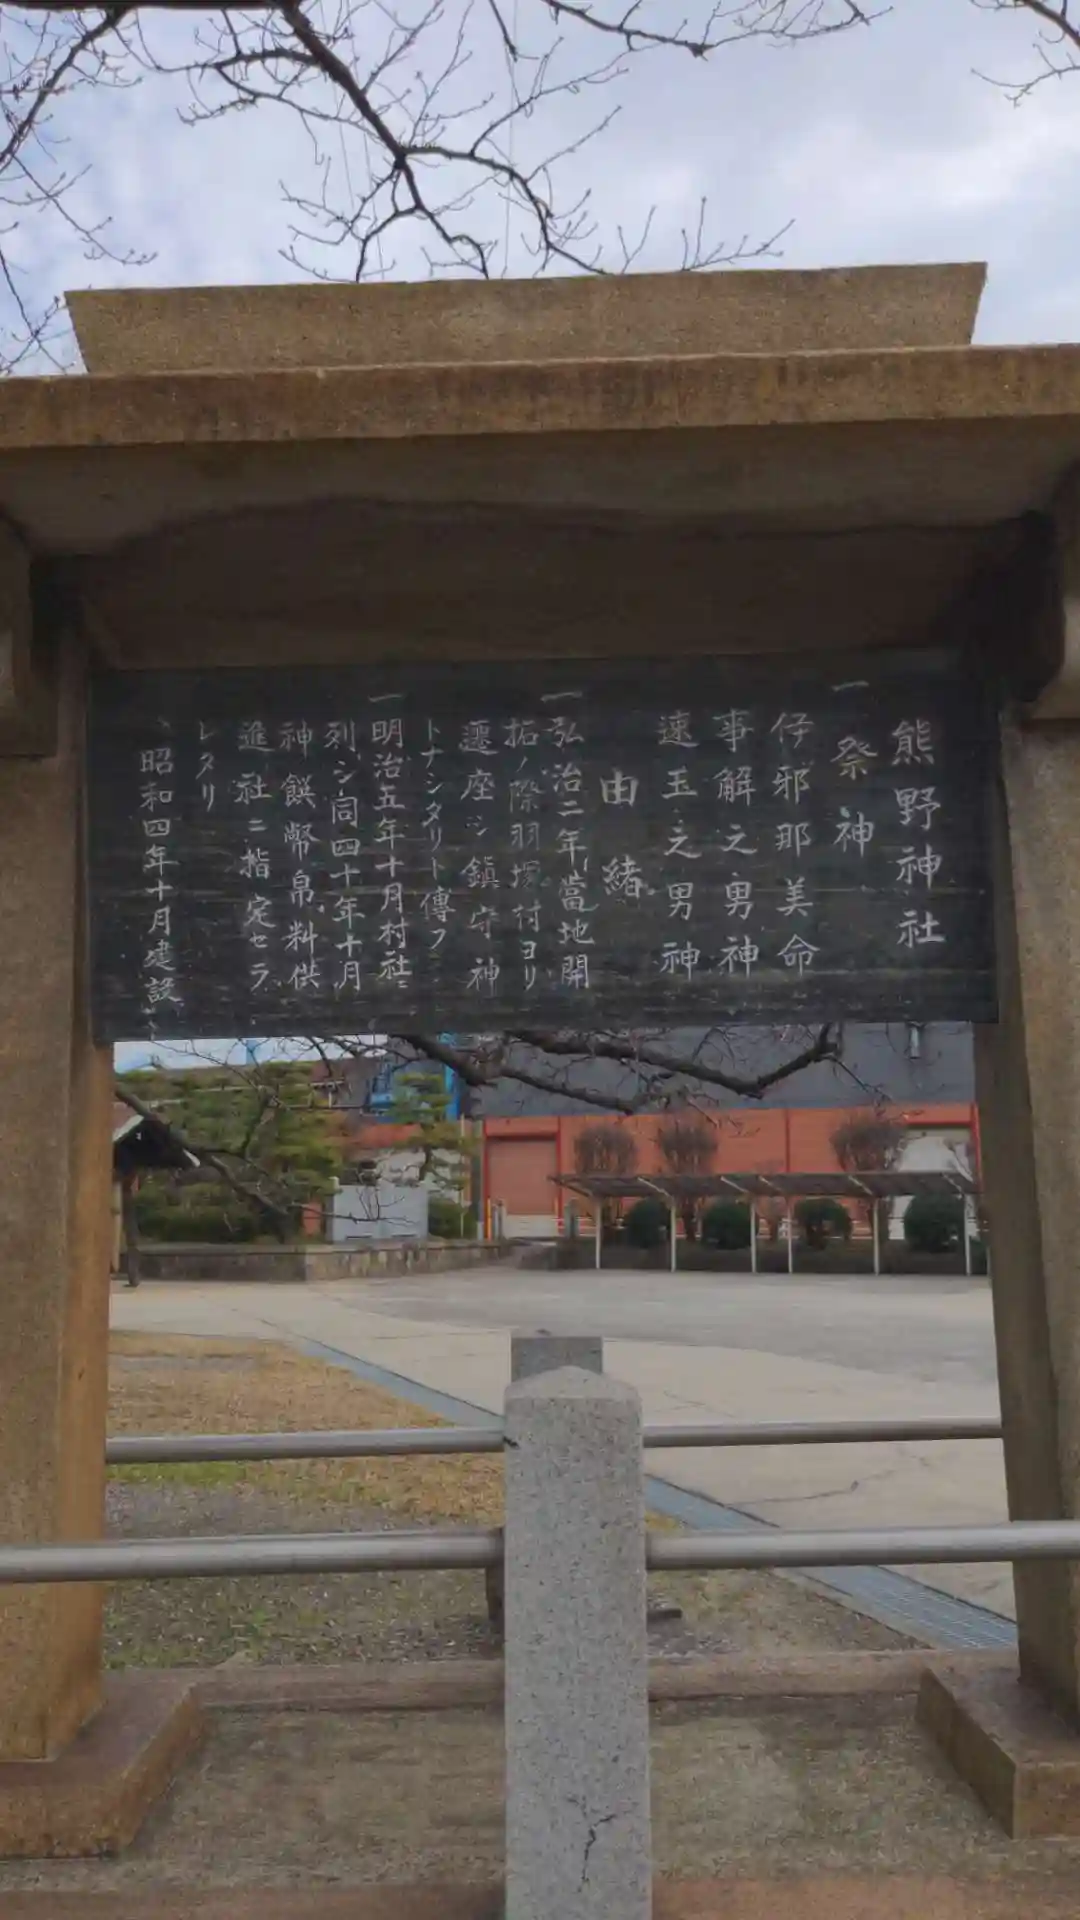 熊野神社
一祭神
伊邪那美命
事解之男神
速玉之男神
由緒
一弘治二年當地開
拓ノ際羽塚村ヨリ
遷座シ鎮守神
トナシタリト傳フ
一明治五年十月村社ニ
列シ同四十年十月
神饌幣帛料供
進社ニ指定セラ
レタリ
昭和四年十月建設